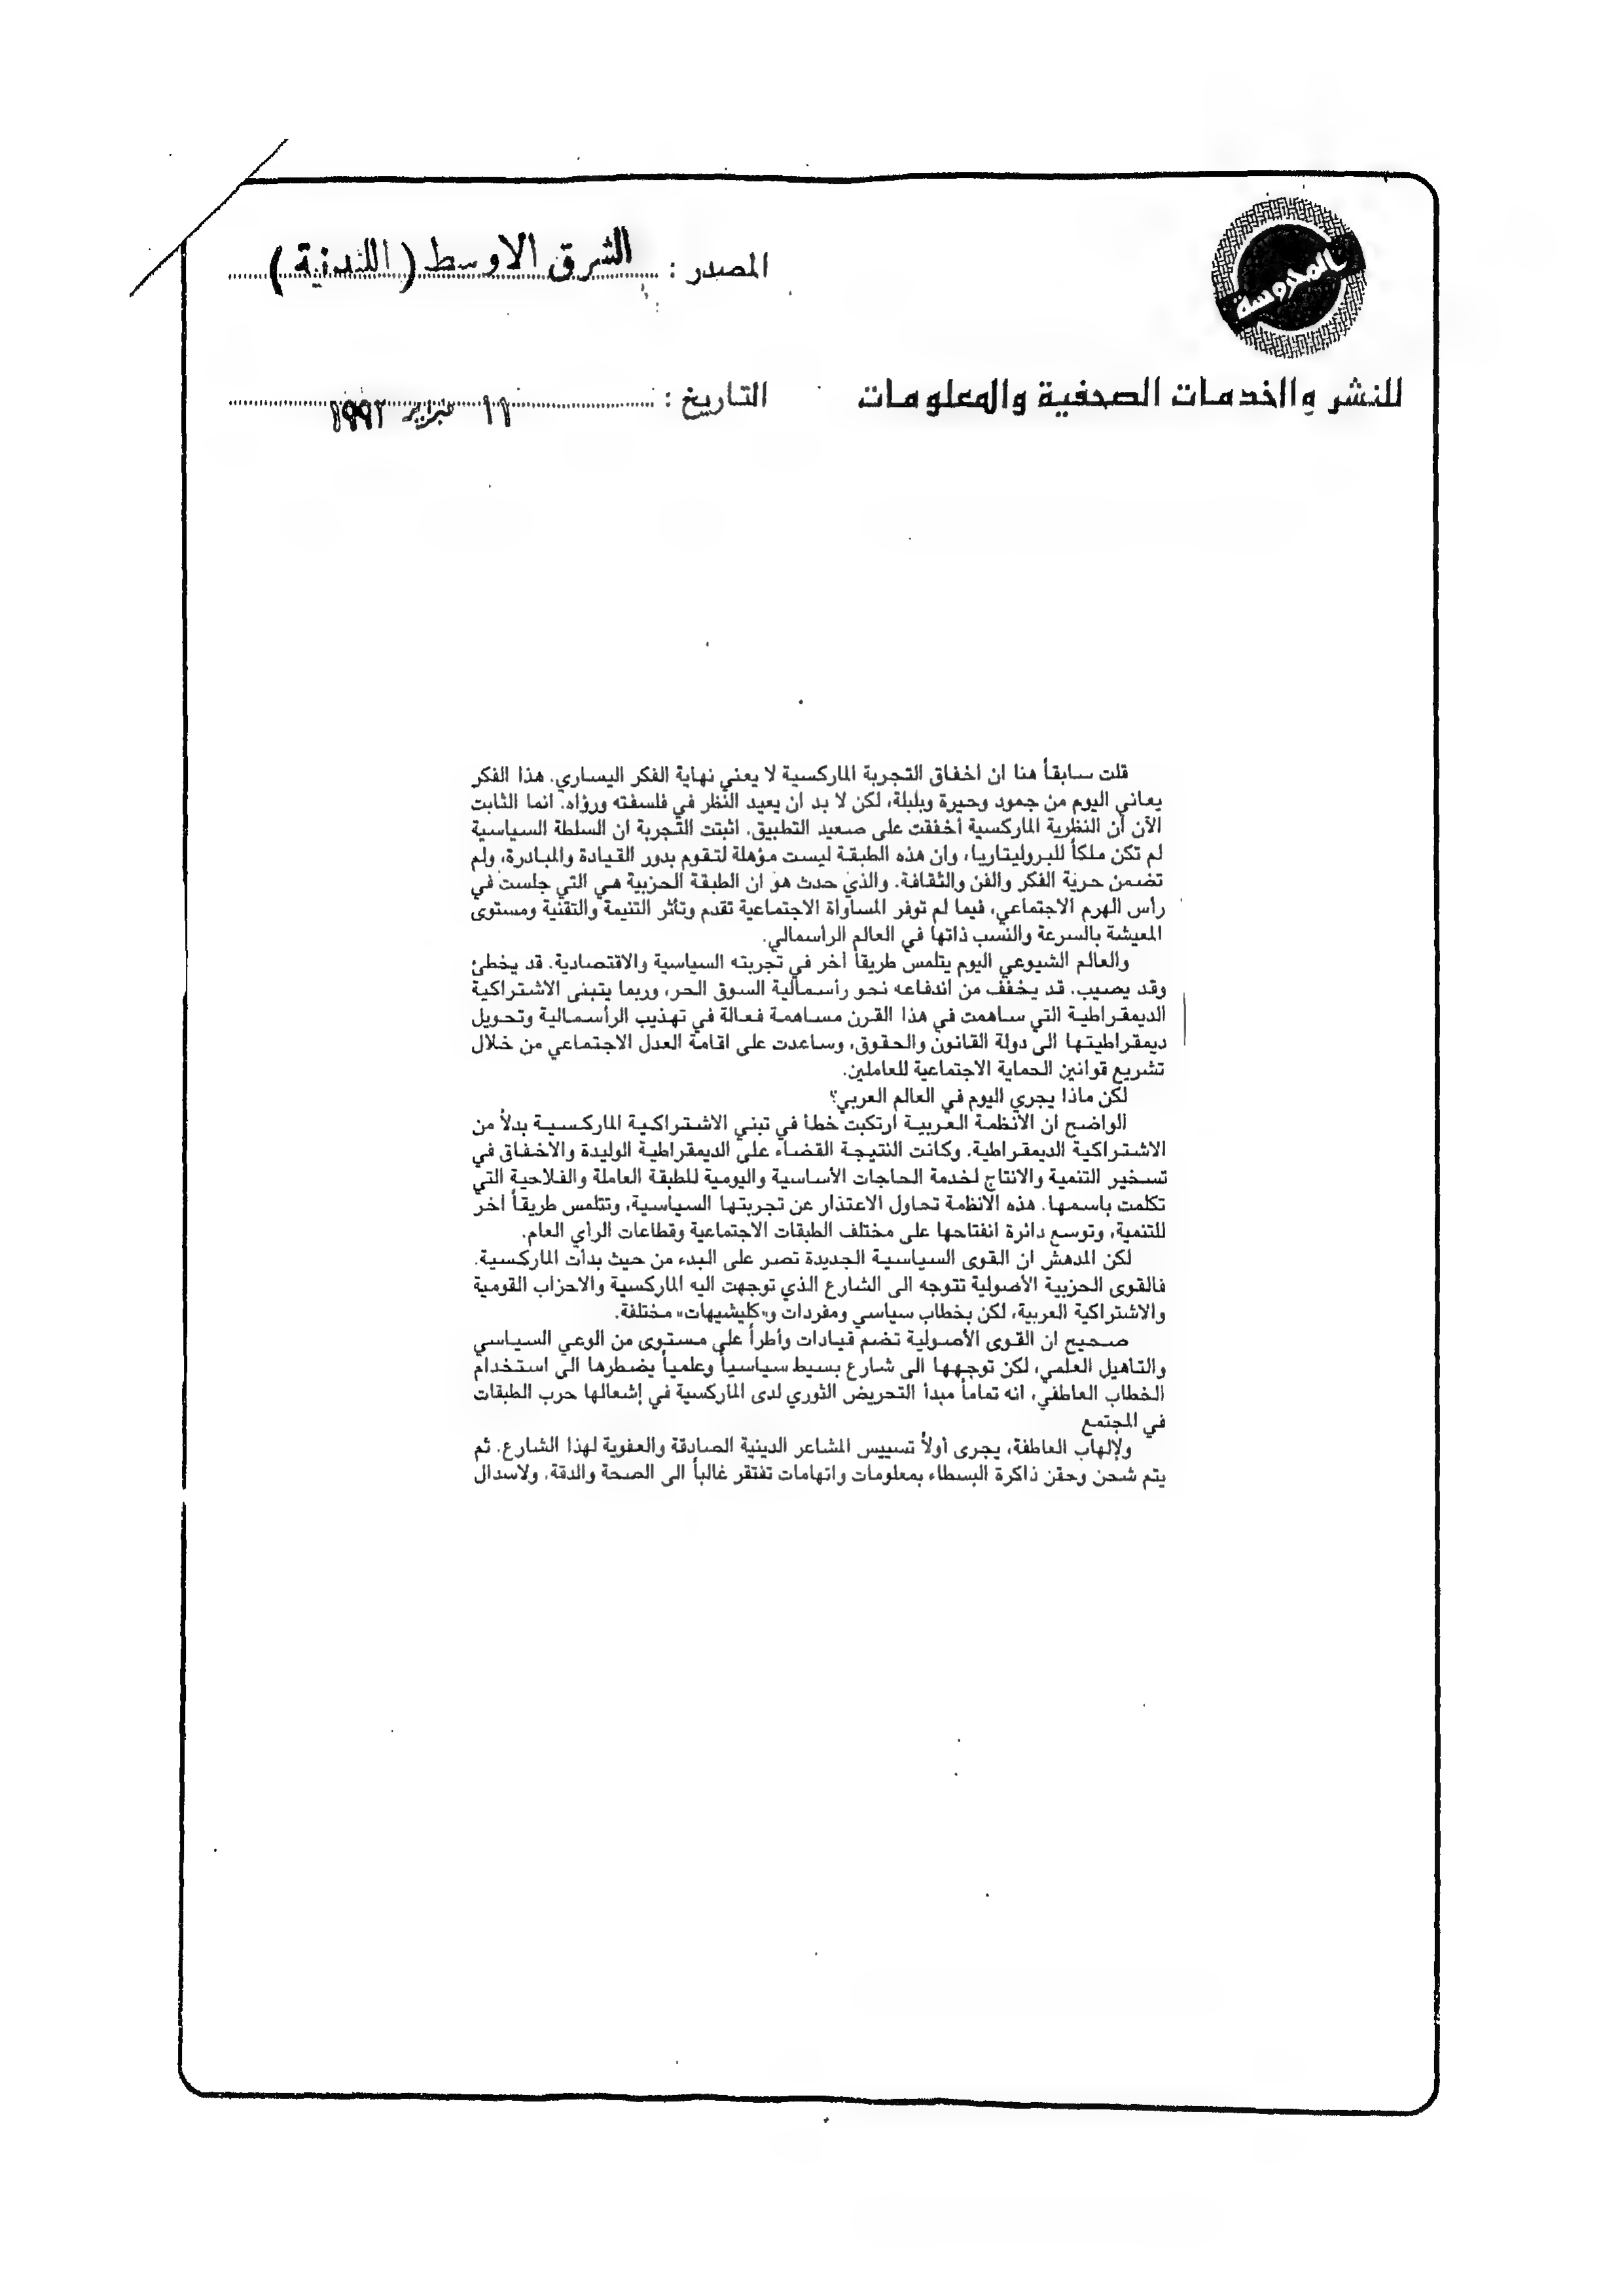 المحروسة
للنشر والخدمات الصحفية والمعلومات
المصدر : الشرق الاوسط (اللندنية)
التاريخ : ١١ فبراير ١٩٩٢
قلت سابقاً هنا ان اخفاق التجربة الماركسية لا يعني نهاية الفكر اليساري. هذا الفكر
يعاني اليوم من جمود وحيرة وبلبلة، لكن لا بد ان يعيد النظر في فلسفته ورؤاه. انما الثابت
الآن أن النظرية الماركسية أخفقت على صعيد التطبيق. اثبتت التجربة ان السلطة السياسية
لم تكن ملكاً للبروليتاريا، وان هذه الطبقة ليست مؤهلة لتقوم بدور القيادة والمبادرة، ولم
تضمن حرية الفكر والفن والثقافة. والذي حدث هو ان الطبقة الحزبية هي التي جلست في
رأس الهرم الاجتماعي، فيما لم توفر المساواة الاجتماعية تقدم وتأثر التنيمة والتقنية ومستوى
المعيشة بالسرعة والنسب ذاتها في العالم الرأسمالي.
والعالم الشيوعي اليوم يتلمس طريقاً آخر في تجربته السياسية والاقتصادية. قد يخطئ
وقد يصيب. قد يخفف من اندفاعه نحو رأسمالية السوق الحر، وربما يتبنى الاشتراكية
الديمقراطية التي ساهمت في هذا القرن مساهمة فعالة في تهذيب الرأسمالية وتحويل
ديمقراطيتها الى دولة القانون والحقوق، وساعدت على اقامة العدل الاجتماعي من خلال
تشريع قوانين الحماية الاجتماعية للعاملين.
لكن ماذا يجري اليوم في العالم العربي؟
الواضح ان الانظمة العربية ارتكبت خطأ في تبني الاشتراكية الماركسية بدلاً من
الاشتراكية الديمقراطية. وكانت النتيجة القضاء على الديمقراطية الوليدة والاخفاق في
تسخير التنمية والانتاج لخدمة الحاجات الأساسية واليومية للطبقة العاملة والفلاحية التي
تكلمت باسمها. هذه الانظمة تحاول الاعتذار عن تجربتها السياسية، وتتلمس طريقاً آخر
للتنمية، وتوسع دائرة انفتاحها على مختلف الطبقات الاجتماعية وقطاعات الرأي العام.
لكن المدهش ان القوى السياسية الجديدة تصر على البدء من حيث بدأت الماركسية.
فالقوى الحزبية الأصولية تتوجه الى الشارع الذي توجهت اليه الماركسية والاحزاب القومية
والاشتراكية العربية، لكن بخطاب سياسي ومفردات و«كليشيهات» مختلفة.
صحيح ان القوى الأصولية تضم قيادات وأطراً على مستوى من الوعي السياسي
والتأهيل العلمي، لكن توجهها الى شارع بسيط سياسياً وعلمياً يضطرها الى استخدام
الخطاب العاطفي، انه تماماً مبدأ التحريض الثوري لدى الماركسية في إشعالها حرب الطبقات
في المجتمع
ولإلهاب العاطفة، يجرى أولاً تسييس المشاعر الدينية الصادقة والعفوية لهذا الشارع. ثم
يتم شحن وحقن ذاكرة البسطاء بمعلومات واتهامات تفتقر غالباً الى الصحة والدقة. ولاسدال